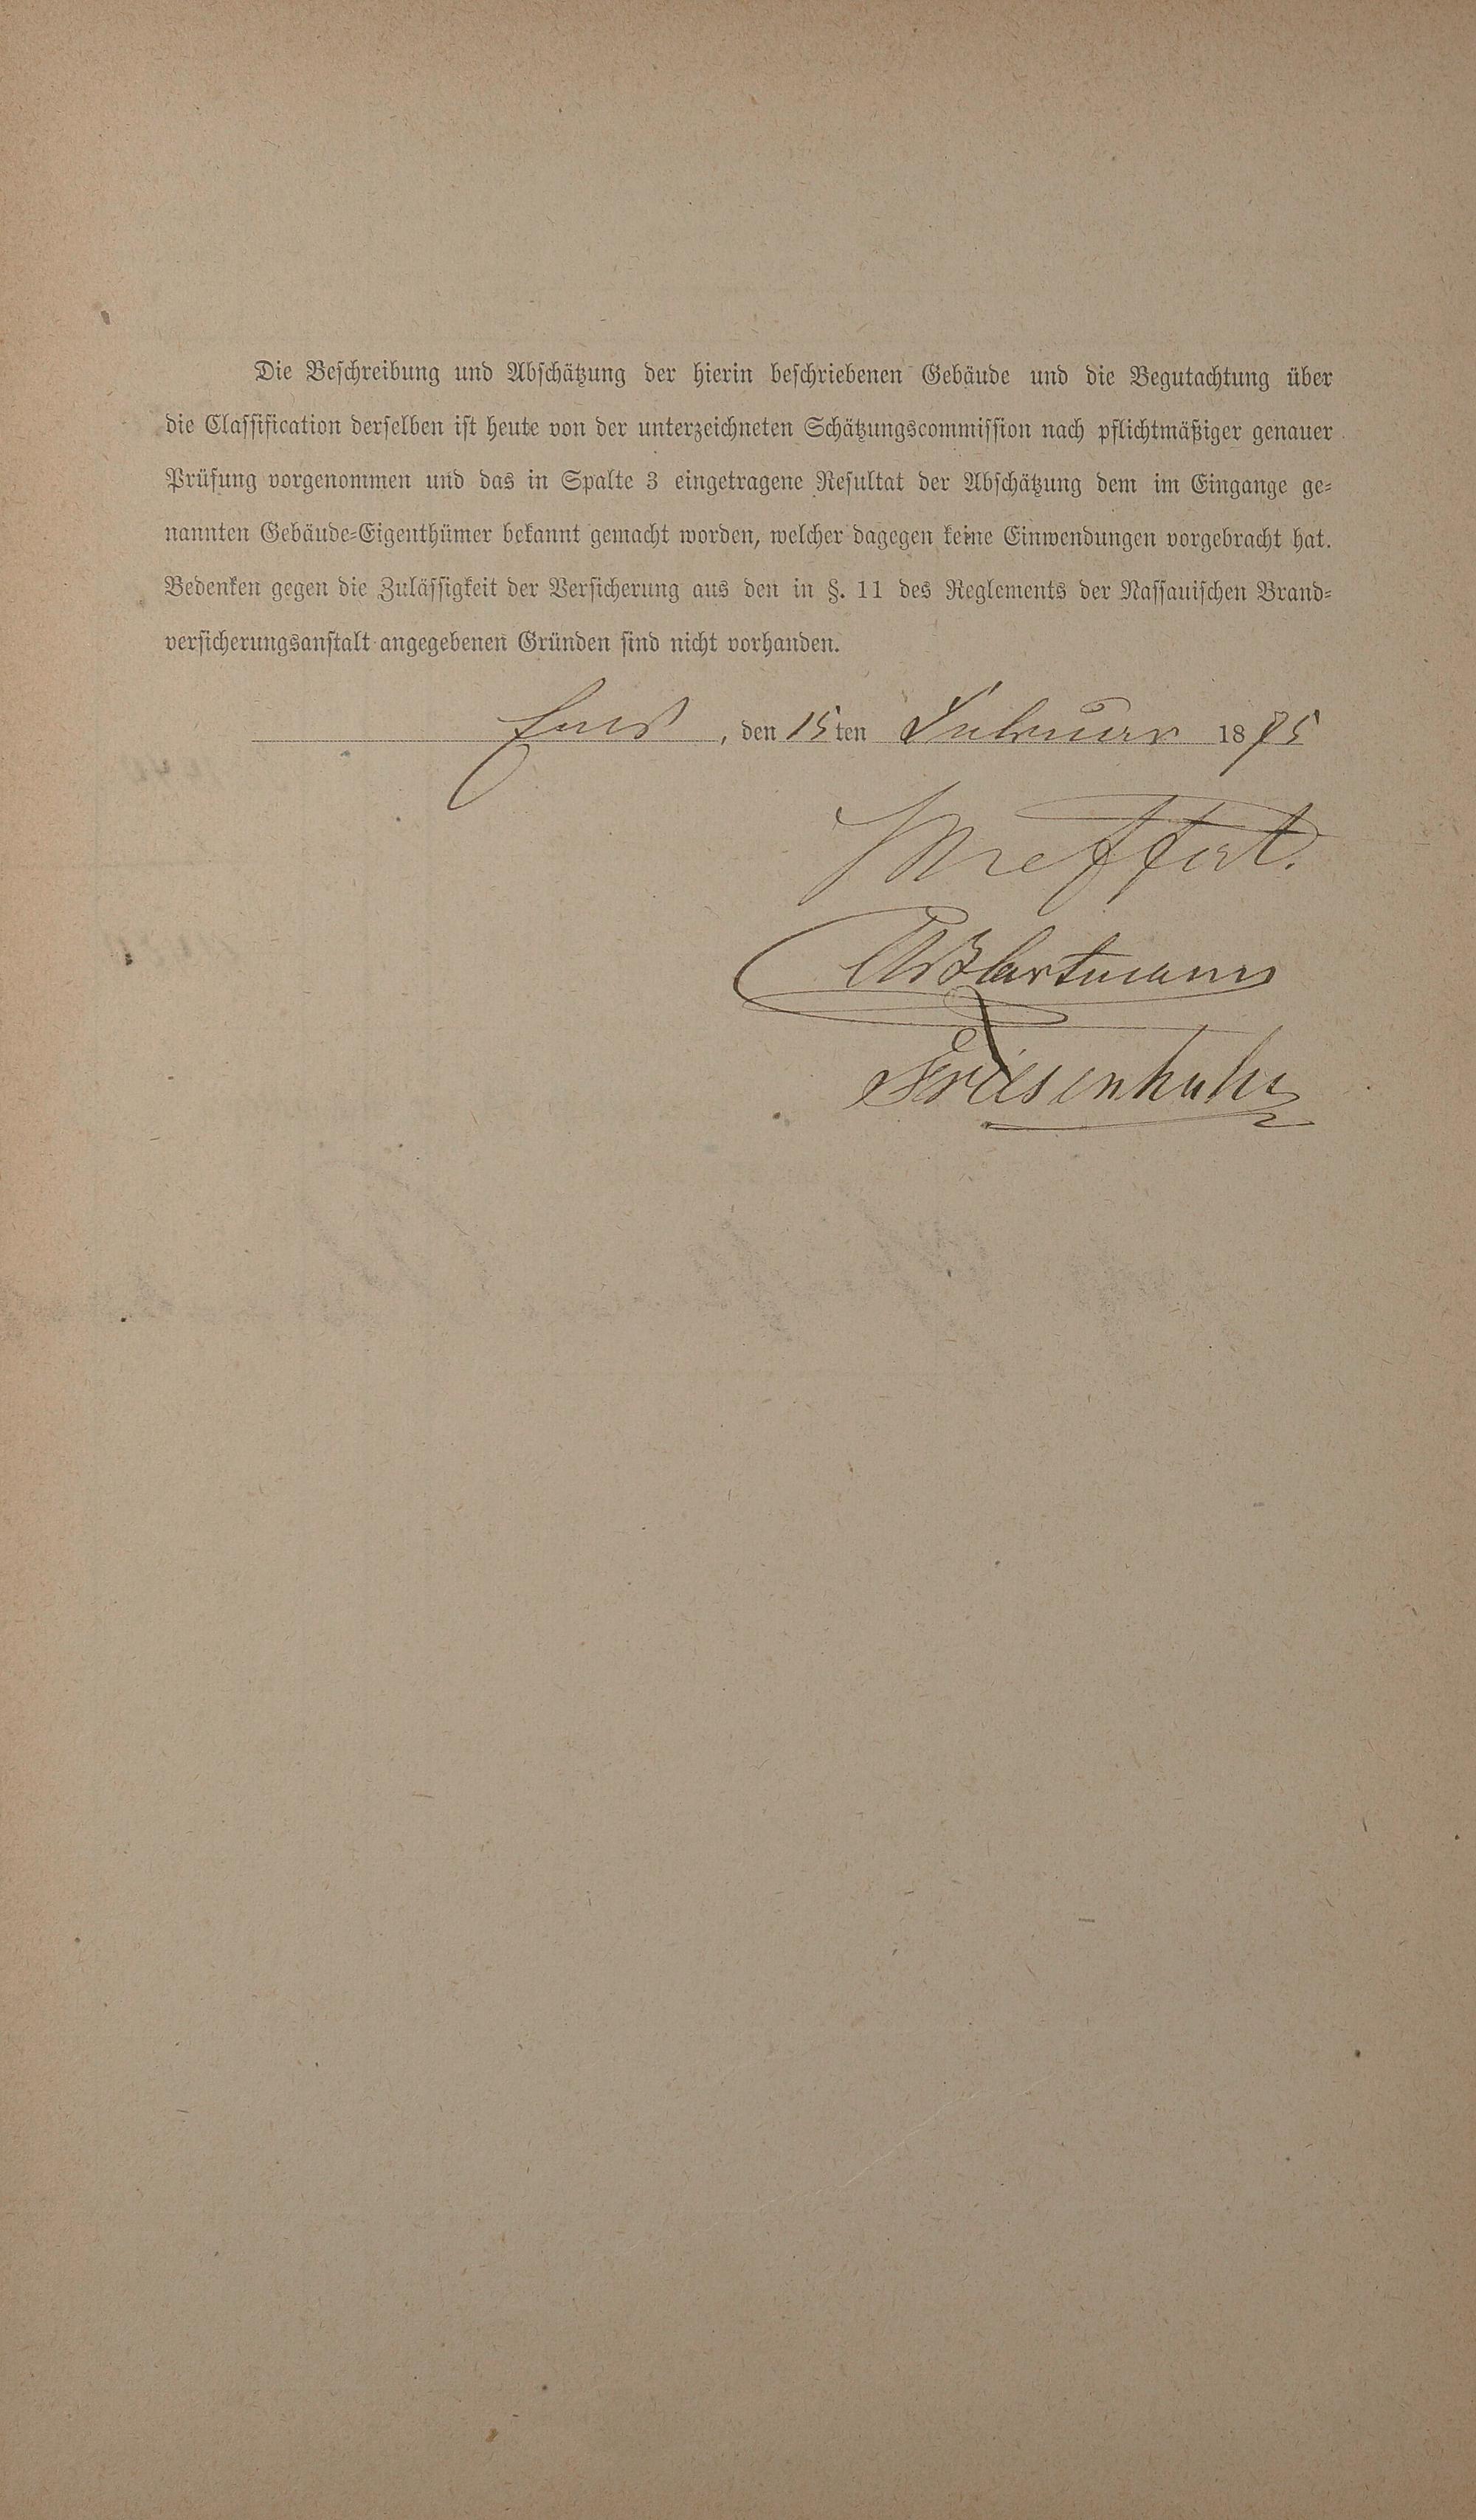 Die Beschreibung und Abschätzung der hierin beschriebenen Gebäude und die Begutachtung über
die Classification derselben ist heute von der unterzeichneten Schätzungscommission nach pflichtmäßiger genauer
Prüfung vorgenommen und das in Spalte 3 eingetragene Resultat der Abschätzung dem im Eingange ge=
nannten Gebäude=Eigenthümer bekannt gemacht worden, welcher dagegen keine Einwendungen vorgebracht hat.
Bedenken gegen die Zulässigkeit der Versicherung aus den in §. 11 des Reglements der Nassauischen Brand=
versicherungsanstalt angegebenen Gründen sind nicht vorhanden.
Ems, den 15ten Februar 18
Meffert.
Hartmann
Friesenhahn